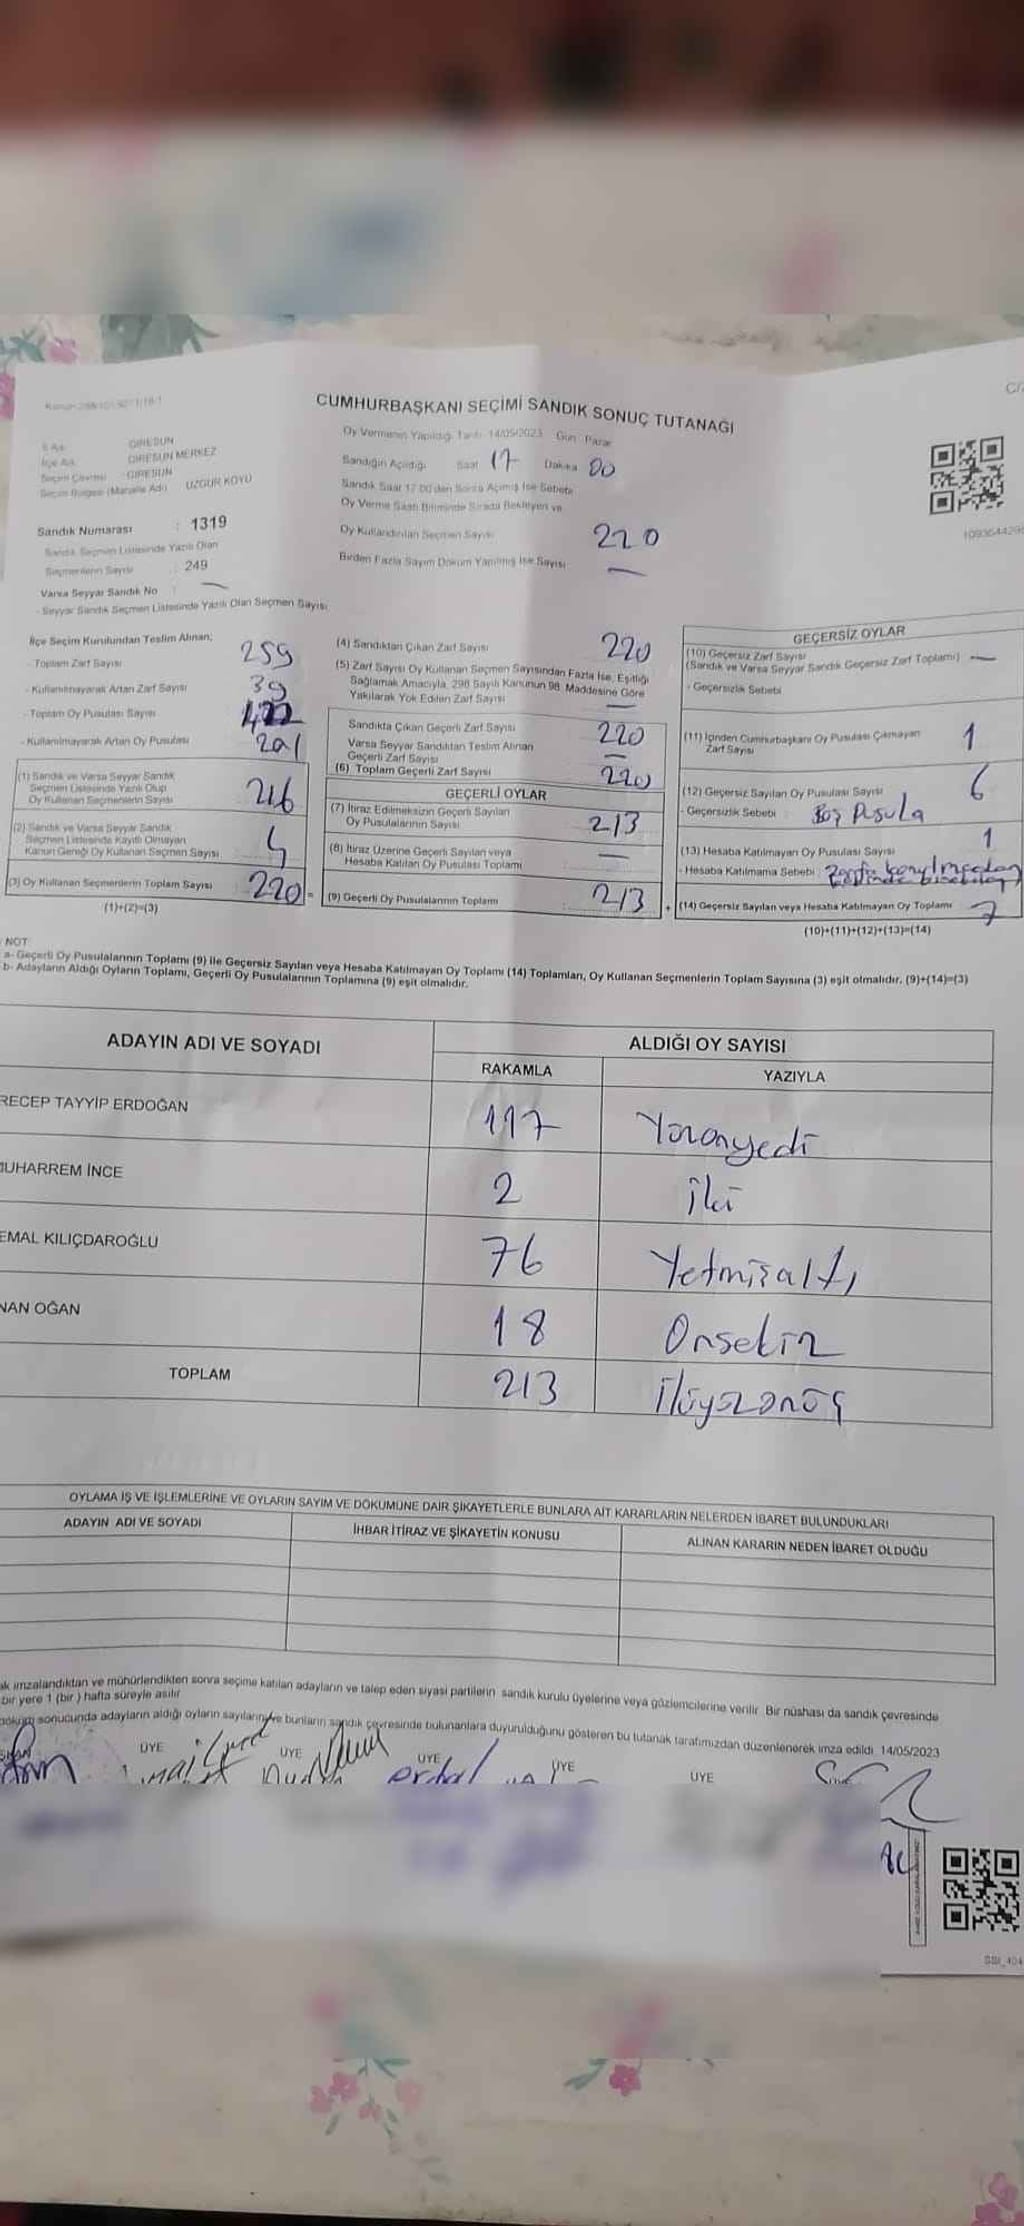 CUMHURBAŞKANI SEÇİMİ SANDIK SONUÇ TUTANAĞI
Oy Vermenin Yapıldığı Tarih 14/05/2023 Gün Pazar
İl Adı GİRESUN
İlçe Adı GİRESUN MERKEZ
Seçim Çevresi GİRESUN
Seçim Bölgesi (Mahalle Adı) UZGUR KÖYÜ
Sandığın Açıldığı Saat 17 Dakika 00
Sandık Saat 17:00'den Sonra Açılmış İse Sebebi
Oy Verme Saati Bitiminde Sırada Bekleyen ve
Sandık Numarası : 1319
Oy Kullandırılan Seçmen Sayısı 220
Sandık Seçmen Listesinde Yazılı Olan
Seçmenlerin Sayısı : 249
Birden Fazla Sayım Döküm Yapılmış İse Sayısı —
Varsa Seyyar Sandık No : —
- Seyyar Sandık Seçmen Listesinde Yazılı Olan Seçmen Sayısı
İlçe Seçim Kurulundan Teslim Alınan;
- Toplam Zarf Sayısı 259
- Kullanılmayarak Artan Zarf Sayısı 39
- Toplam Oy Pusulası Sayısı
- Kullanılmayarak Artan Oy Pusulası 201
(1) Sandık ve Varsa Seyyar Sandık
Seçmen Listesinde Yazılı Olup
Oy Kullanan Seçmenlerin Sayısı 216
(2) Sandık ve Varsa Seyyar Sandık
Seçmen Listesinde Kayıtlı Olmayan
Kanun Gereği Oy Kullanan Seçmen Sayısı 4
(3) Oy Kullanan Seçmenlerin Toplam Sayısı 220 =
(1)+(2)=(3)
(4) Sandıktan Çıkan Zarf Sayısı 220
(5) Zarf Sayısı Oy Kullanan Seçmen Sayısından Fazla İse, Eşitliği
Sağlamak Amacıyla, 298 Sayılı Kanunun 98. Maddesine Göre
Yakılarak Yok Edilen Zarf Sayısı —
Sandıkta Çıkan Geçerli Zarf Sayısı 220
Varsa Seyyar Sandıktan Teslim Alınan
Geçerli Zarf Sayısı —
(6) Toplam Geçerli Zarf Sayısı 220
GEÇERLİ OYLAR
(7) İtiraz Edilmeksizin Geçerli Sayılan
Oy Pusulalarının Sayısı 213
(8) İtiraz Üzerine Geçerli Sayılan veya
Hesaba Katılan Oy Pusulası Toplamı —
(9) Geçerli Oy Pusulalarının Toplamı 213 +
GEÇERSİZ OYLAR
(10) Geçersiz Zarf Sayısı
(Sandık ve Varsa Seyyar Sandık Geçersiz Zarf Toplamı) —
- Geçersizlik Sebebi
(11) İçinden Cumhurbaşkanı Oy Pusulası Çıkmayan
Zarf Sayısı 1
(12) Geçersiz Sayılan Oy Pusulası Sayısı 6
- Geçersizlik Sebebi : Boş Pusula
(13) Hesaba Katılmayan Oy Pusulası Sayısı 1
- Hesaba Katılmama Sebebi :
(14) Geçersiz Sayılan veya Hesaba Katılmayan Oy Toplamı 7
(10)+(11)+(12)+(13)=(14)
NOT
a- Geçerli Oy Pusulalarının Toplamı (9) ile Geçersiz Sayılan veya Hesaba Katılmayan Oy Toplamı (14) Toplamları, Oy Kullanan Seçmenlerin Toplam Sayısına (3) eşit olmalıdır. (9)+(14)=(3)
b- Adayların Aldığı Oyların Toplamı, Geçerli Oy Pusulalarının Toplamına (9) eşit olmalıdır.
ADAYIN ADI VE SOYADI ALDIĞI OY SAYISI
RAKAMLA YAZIYLA
RECEP TAYYİP ERDOĞAN 117 Yüzonyedi
MUHARREM İNCE 2 İki
EMAL KILIÇDAROĞLU 76 Yetmişaltı
NAN OĞAN 18 Onsekiz
TOPLAM 213 İkiyüzonüç
OYLAMA İŞ VE İŞLEMLERİNE VE OYLARIN SAYIM VE DÖKÜMÜNE DAİR ŞİKAYETLERLE BUNLARA AİT KARARLARIN NELERDEN İBARET BULUNDUKLARI
ADAYIN ADI VE SOYADI İHBAR İTİRAZ VE ŞİKAYETİN KONUSU ALINAN KARARIN NEDEN İBARET OLDUĞU
ak imzalandıktan ve mühürlendikten sonra seçime katılan adayların ve talep eden siyasi partilerin sandık kurulu üyelerine veya gözlemcilerine verilir. Bir nüshası da sandık çevresinde
bir yere 1 (bir) hafta süreyle asılır
döküm sonucunda adayların aldığı oyların sayılarını ve bunların sandık çevresinde bulunanlara duyurulduğunu gösteren bu tutanak tarafımızdan düzenlenerek imza edildi. 14/05/2023
ÜYE ÜYE ÜYE ÜYE ÜYE